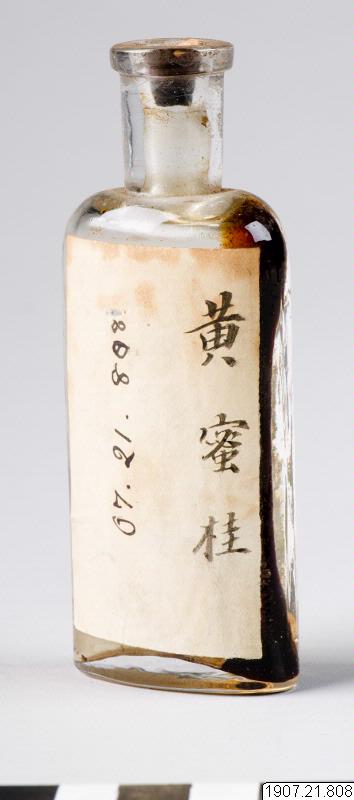 黄蜜桂
07.21.808
1907.21.808